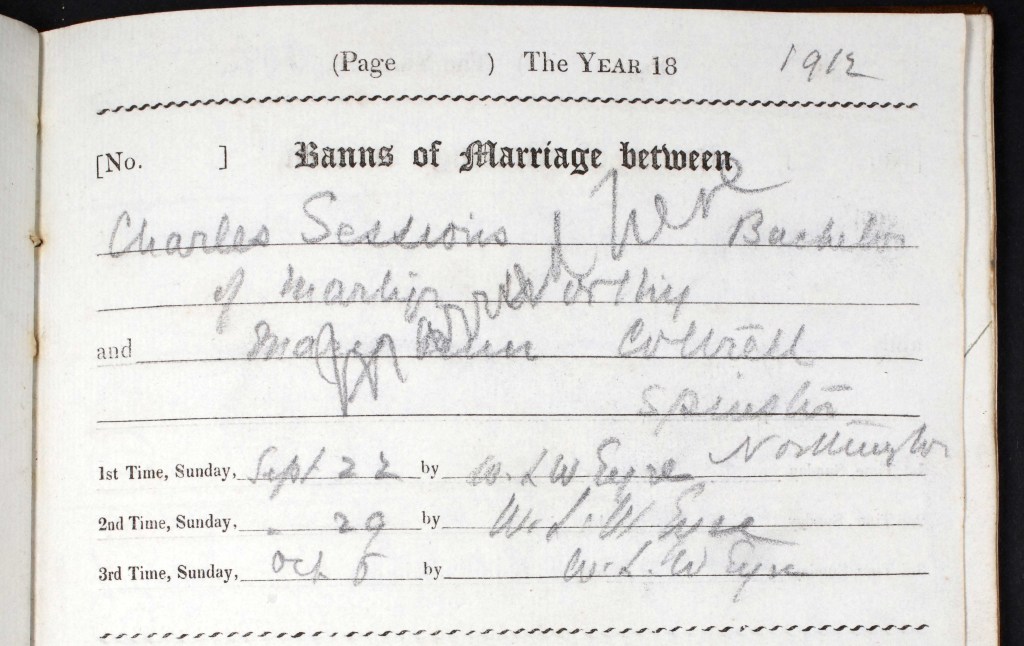 (Page ) The YEAR 18 1912
[No. ] Banns of Marriage between
Charles Sessions Bachelor
of Martyr Worthy
and Mary Ann Cottrell
Spinster
Northington
married here
1st Time, Sunday, Sept 22 by W. L. W Eyre
2nd Time, Sunday, - 29 by W. L. W Eyre
3rd Time, Sunday, Oct 6 by W. L. W Eyre